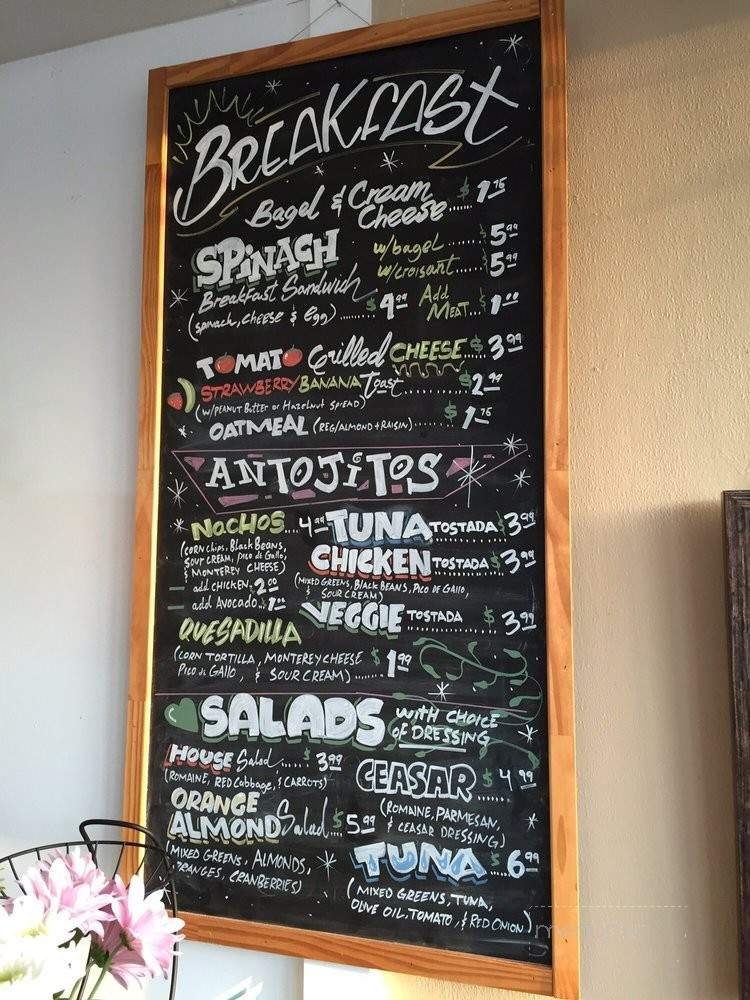 BREAKFAST
Bagel & Cream Cheese...... $1.75
SPINACH
Breakfast Sandwich
(spinach, cheese & egg)....... $4.99
w/bagel...... $5.99
w/croisant..... $5.99
Add Meat... $1.00
TOMATO Grilled CHEESE.... $3.99
STRAWBERRY BANANA Toast........... $2.99
(w/PEANUT Butter or Hazelnut SPREAD)
OATMEAL (REG/ALMOND+RAISIN)....... $1.75
ANTOJITOS
NACHOS... 4.99
(CORN chips, Black Beans,
SOUR CREAM, PICO de Gallo,
& MONTEREY CHEESE)
add CHICKEN.. 2.00
add Avocado.. $1.00
QUESADILLA
(CORN TORTILLA, MONTEREY CHEESE
Pico di GAllO, & SOUR CREAM)..... $1.99
TUNA TOSTADA $3.99
CHICKEN TOSTADA $3.99
(MIXED GREENS, BLACK BEANS, PICO DE GALLO,
& SOUR CREAM)
VEGGIE TOSTADA $3.99
SALADS WITH CHOICE
OF DRESSING
HOUSE Salad...... $3.99
(ROMAINE, RED Cabbage, & CARROTS)
ORANGE
ALMOND Salad.... $5.99
(MIXED GREENS, ALMONDS,
ORANGES, CRANBERRIES)
CEASAR $4.99
(ROMAINE, PARMESAN,
& CEASAR DRESSING)
TUNA $6.99
(MIXED GREENS, TUNA,
OLIVE OIL, TOMATO, & RED ONION)